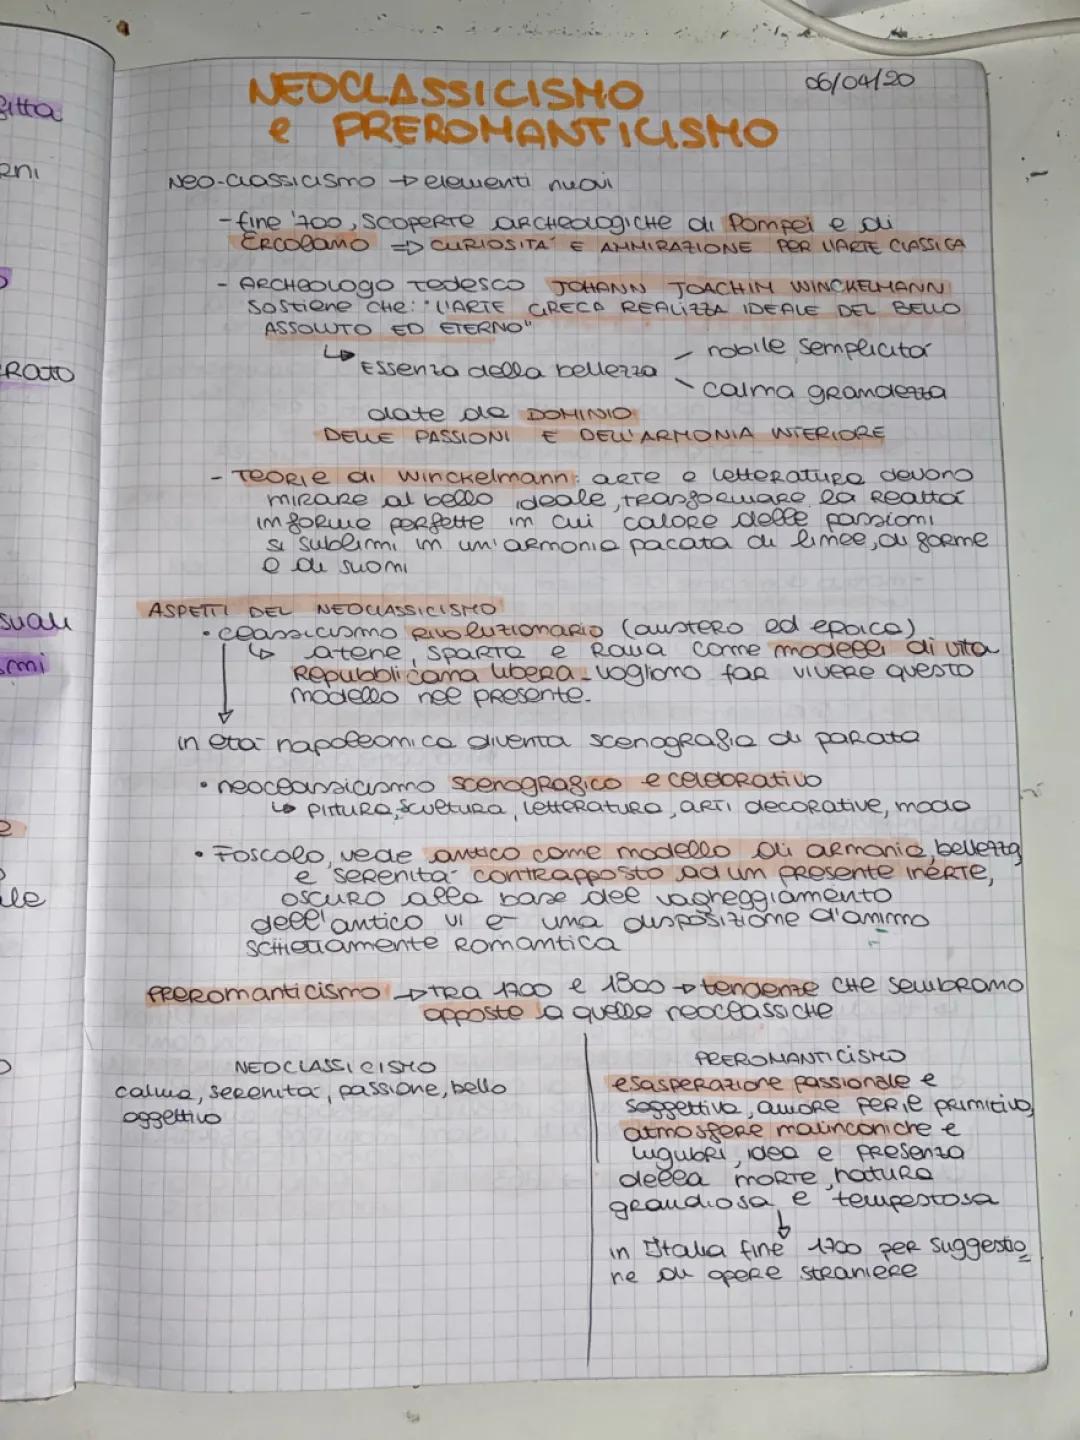 fitta
erni
o
RATO
suali
smi
e
ale
o
06/04/20
NEOCLASSICISMO
e PREROMANTICISMO
Neo-classicismo → elementi nuovi
- fine '700, scoperte archeologiche di Pompei e di
Ercolano => CURIOSITA' E AMMIRAZIONE PER L'ARTE CLASSICA
- Archeologo tedesco JOHANN JOACHIM WINCKELMANN
sostiene che: "L'ARTE GRECA REALIZZA IDEALE DEL BELLO
ASSOLUTO ED ETERNO"
↳ Essenza della bellezza - nobile semplicità
- calma grandezza
date da DOMINIO
DELLE PASSIONI E DELL'ARMONIA INTERIORE
- Teorie di Winckelmann: arte e letteratura devono
mirare al bello ideale, trasformare la realtà
in forme perfette in cui calore delle passioni
si sublimi in un'armonia pacata di linee, di forme
e di suoni
ASPETTI DEL NEOCLASSICISMO
• classicismo rivoluzionario (austero ed epico)
↳ atene, sparta e Roma come modelli di vita
repubblicana libera - vogliono far vivere questo
modello nel presente.
in età napoleonica diventa scenografia di parata
• neoclassicismo scenografico e celebrativo
↳ pittura, scultura, letteratura, arti decorative, moda
• Foscolo, vede antico come modello di armonia, bellezza
e serenità contrapposto ad un presente inerte,
oscuro alla base del vagheggiamento
dell'antico vi è una disposizione d'animo
schiettamente romantica
Preromanticismo → TRA 1700 e 1800 → tendenze che sembrano
opposte a quelle neoclassiche
NEOCLASSICISMO
calma, serenità, passione, bello
oggettivo
PREROMANTICISMO
esasperazione passionale e
soggettiva, amore per il primitivo,
atmosfere malinconiche e
lugubri, idea e presenza
della morte, natura
grandiosa e tempestosa
↓
in Italia fine 1700 per suggestio
ne di opere straniere